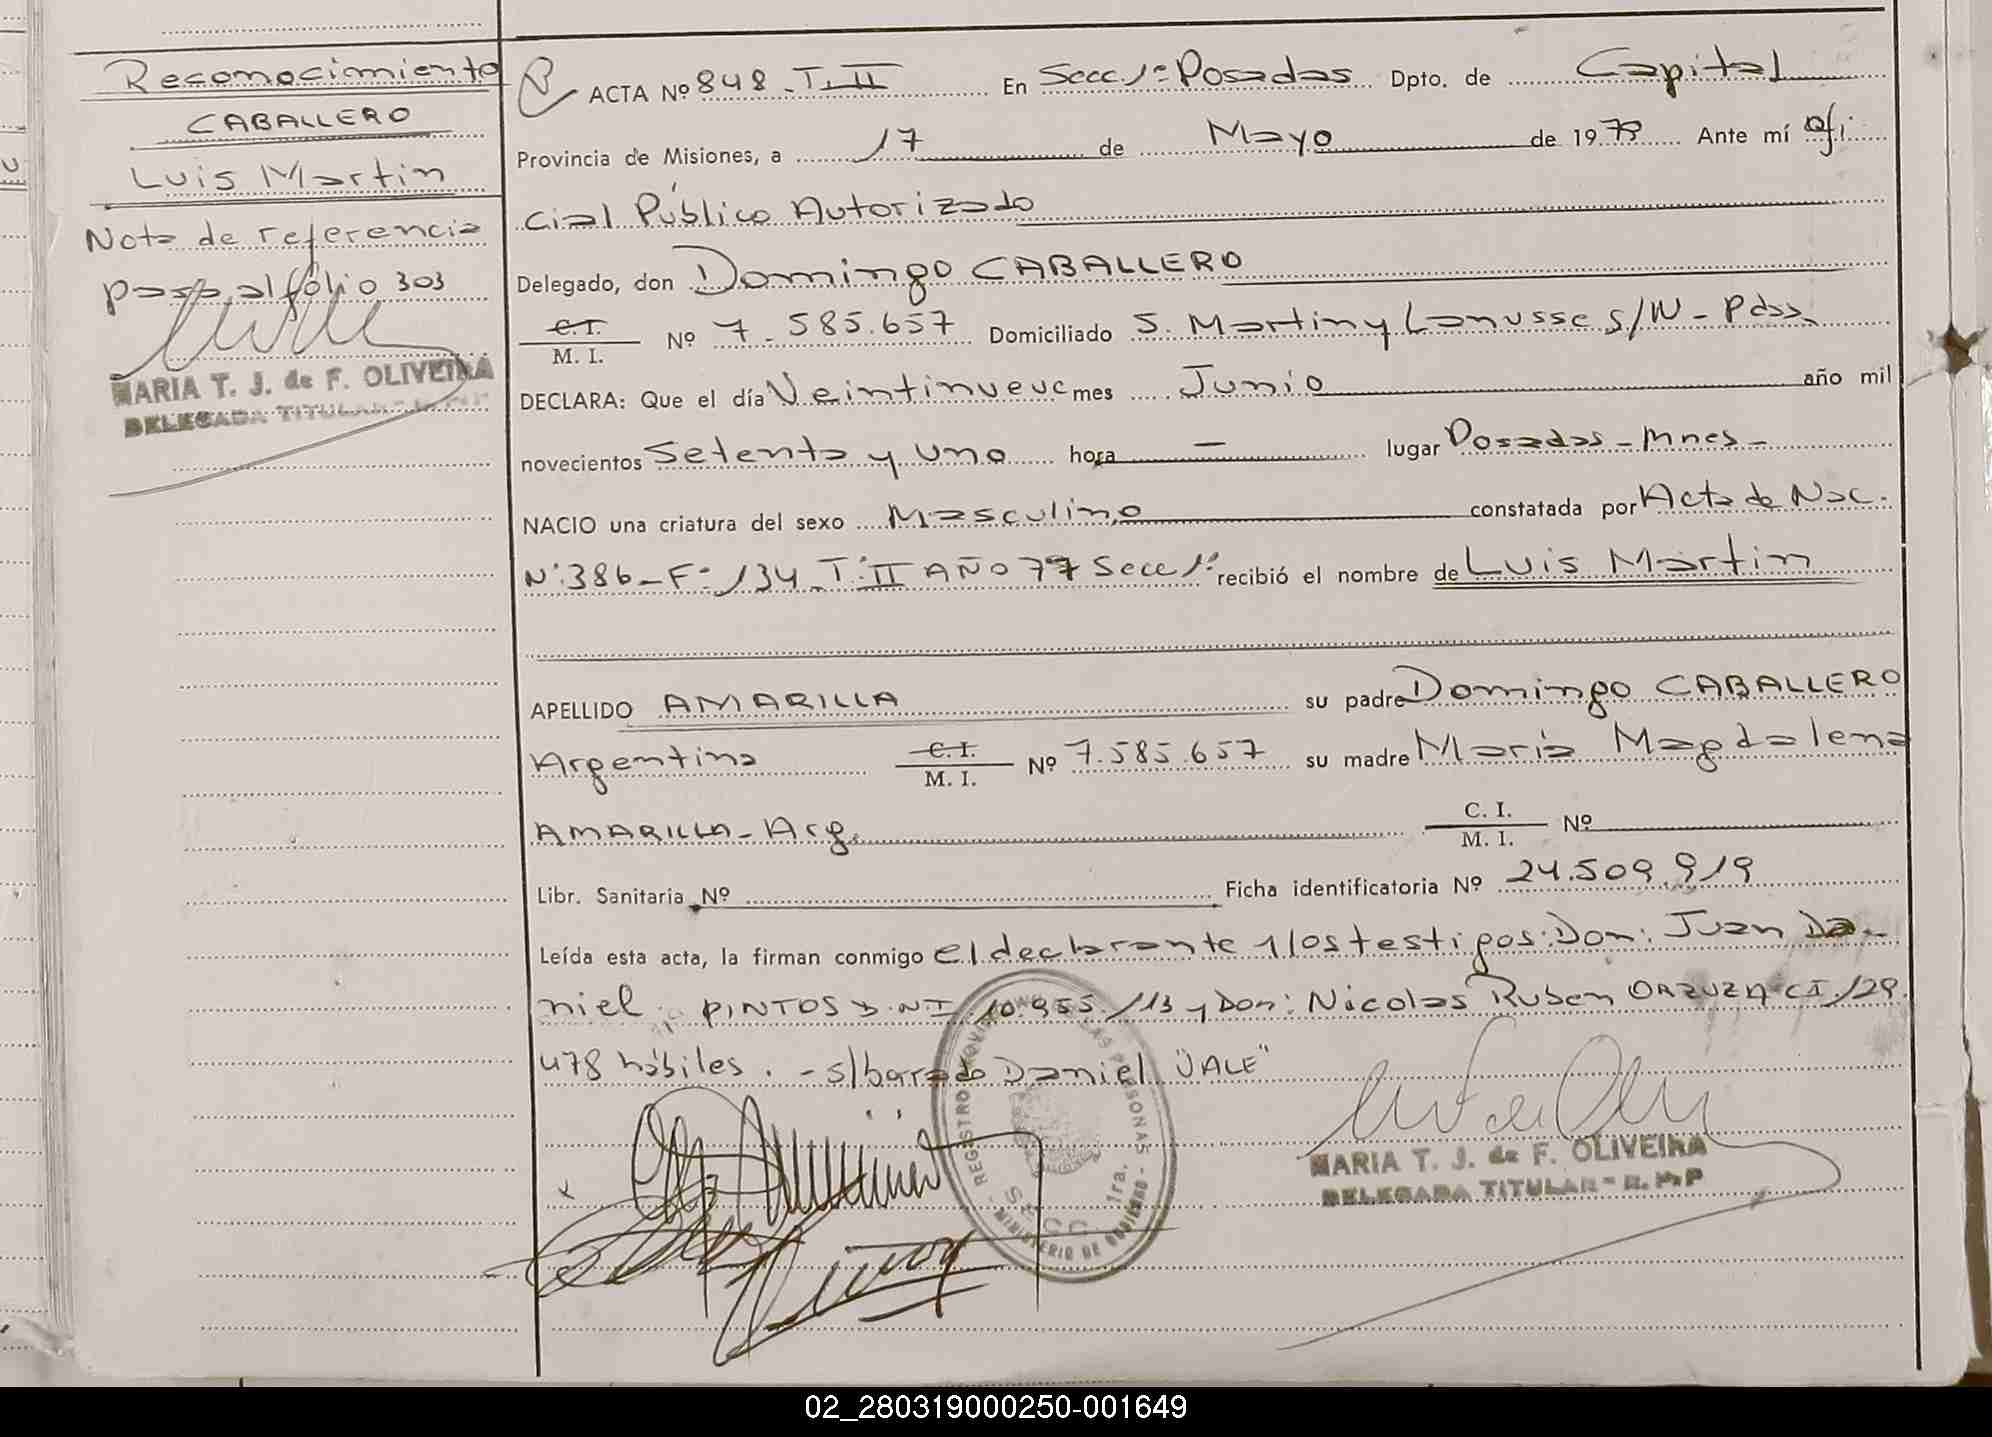 Reconocimiento
CABALLERO
Luis Martin
Nota de referencia
pasa al folio 303
MARIA T. J. de F. OLIVEIRA
DELEGADA TITULAR - R. P. P
ACTA Nº 848 - T. II En Secc 1ª Posadas Dpto. de Capital
Provincia de Misiones, a 17 de Mayo de 1979 Ante mí Ofi
cial Público Autorizado
Delegado, don Domingo CABALLERO
C. I.
M. I. Nº 7.585.657 Domiciliado S. Martin y Lanusse S/N - Pdas.
DECLARA: Que el día Veintinueve mes Junio año mil
novecientos Setenta y Uno hora — lugar Posadas - Mnes -
NACIO una criatura del sexo Masculino constatada por Acta de Nac.
Nº 386 - Fº 134 - Tº II AÑO 77 Secc 1ª recibió el nombre de Luis Martin
APELLIDO AMARILLA su padre Domingo CABALLERO
Argentino C. I.
M. I. Nº 7.585.657 su madre María Magdalena
AMARILLA - Arg. C. I.
M. I. Nº
Libr. Sanitaria Nº Ficha identificatoria Nº 24.509.919
Leída esta acta, la firman conmigo el declarante y los testigos: Don: Juan Da-
niel PINTOS D.N.I. 10.955.113 y Don: Nicolas Ruben ORZUZA CI 129.
478 hábiles. - s/barado Daniel "VALE"
REGISTRO PERSONAS
SECC 1ra.
MINISTERIO DE GOBIERNO
MARIA T. J. de F. OLIVEIRA
DELEGADA TITULAR - R. P. P
02_280319000250-001649